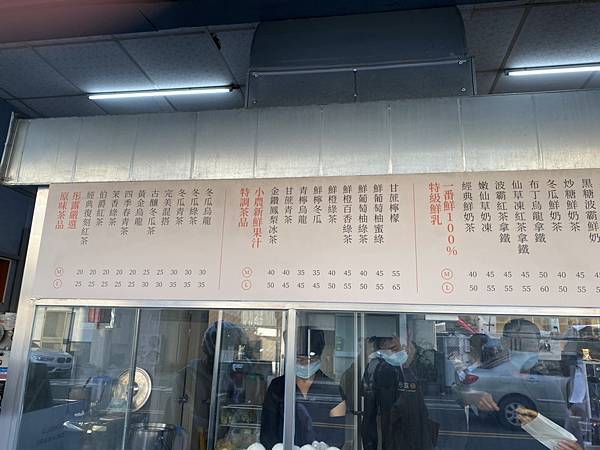 彤露嚴選
原味茶品
經典復刻紅茶
伯爵紅茶
茉香綠茶
四季春青茶
黃金烏龍
古釀冬瓜茶
完美混搭
冬瓜青茶
冬瓜綠茶
冬瓜烏龍
M 20 20 20 20 25 25 30 30 30 30
L 25 25 25 25 30 30 35 35 35 35
小農新鮮果汁
特調茶品
金鑽鳳梨冰茶
甘蔗青茶
青檸烏龍
鮮檸冬瓜
鮮橙綠茶
鮮橙百香綠茶
鮮葡萄柚綠茶
鮮葡萄柚蜜綠
甘蔗檸檬
M 40 40 35 35 40 45 40 45 55
L 50 50 45 45 50 55 50 55 65
一番鮮100%
特級鮮乳
經典鮮奶茶
嫩仙草奶凍
波霸紅茶拿鐵
仙草凍紅茶拿鐵
布丁烏龍拿鐵
冬瓜鮮奶
炒糖鮮奶茶
黑糖波霸鮮奶
M 40 45 45 45 50 40 45
L 50 55 55 55 60 50 55